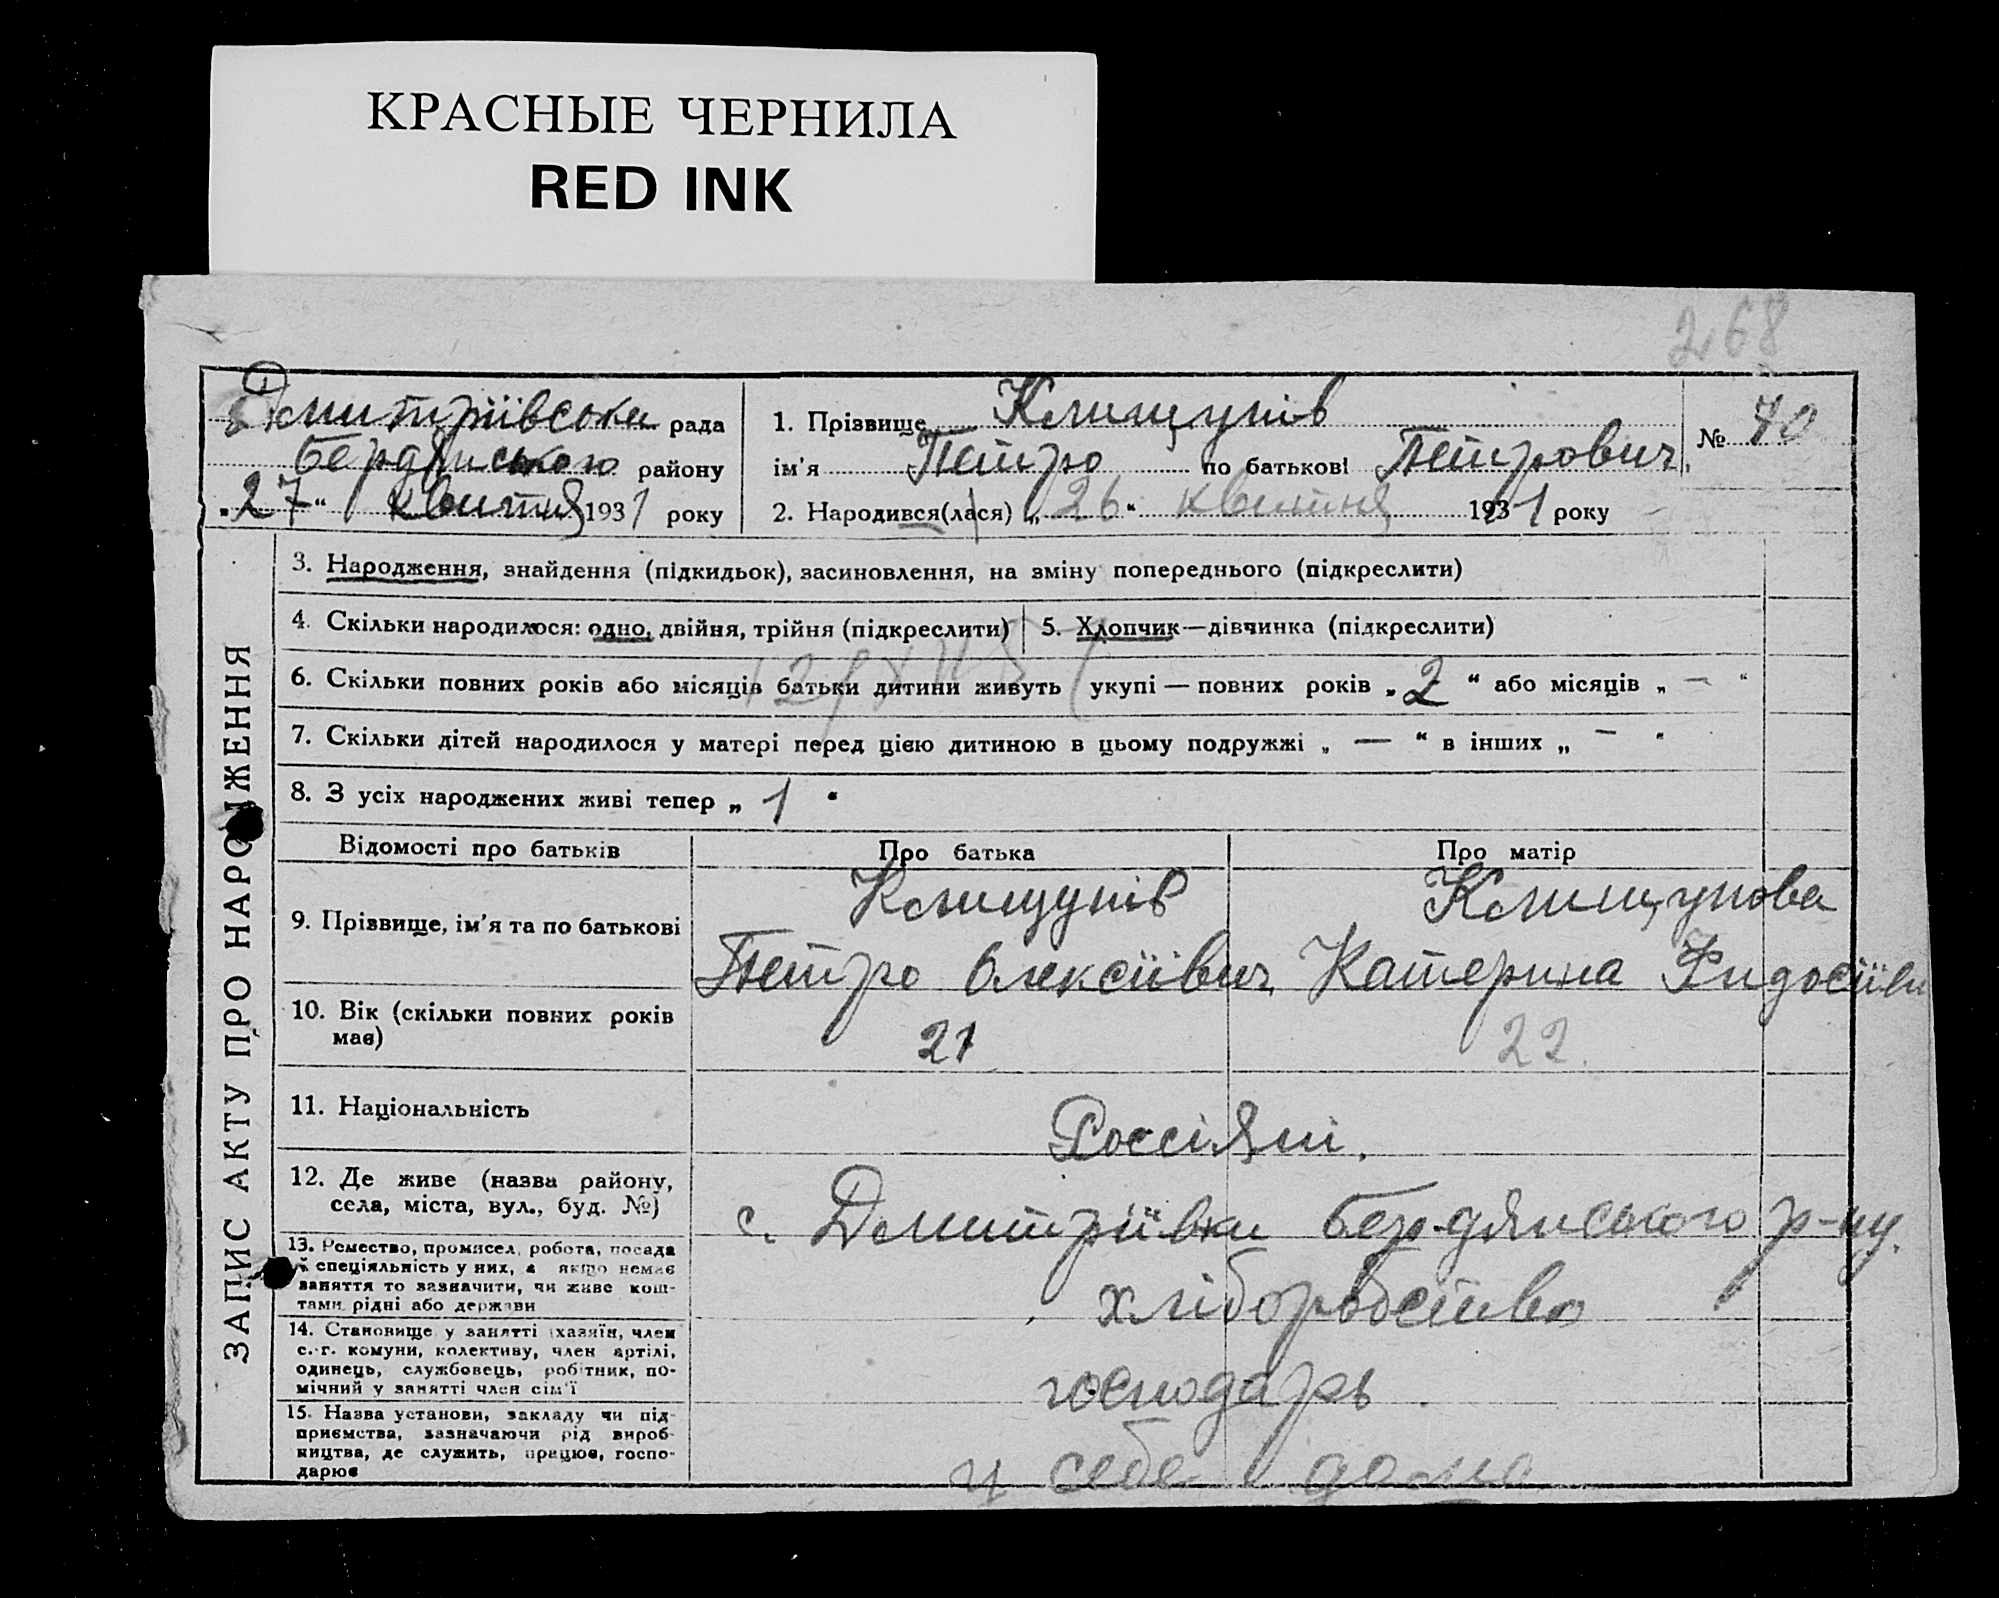 КРАСНЫЕ ЧЕРНИЛА
RED INK
268
Дмитріївська рада
Бердянського району
„27“ квітня 1931 року
1. Прізвище Клищунів
ім'я Петро по батькові Петрович
№ 40
2. Народився(лася) „26“ квітня 1931 року
ЗАПИС АКТУ ПРО НАРОДЖЕННЯ
3. Народження, знайдення (підкидьок), засиновлення, на зміну попереднього (підкреслити)
4. Скільки народилося: одно, двійня, трійня (підкреслити)
5. Хлопчик—дівчинка (підкреслити)
6. Скільки повних років або місяців батьки дитини живуть укупі — повних років „2“ або місяців „—“
7. Скільки дітей народилося у матері перед цією дитиною в цьому подружжі „—“ в інших „—“
8. З усіх народжених живі тепер „1“
Відомості про батьків Про батька Про матір
9. Прізвище, ім'я та по батькові
Клищунів
Петро Олексіївич
Клищунова
Катерина Фидосіївн
10. Вік (скільки повних років має)
21
22.
11. Національність
Россіяні.
12. Де живе (назва району,
села, міста, вул., буд. №)
с. Дмитріївки Бердянського р-ну.
13. Ремество, промисел, робота, посада
й спеціяльність у них, а якщо немає
заняття то зазначити, чи живе кош-
тами рідні або держави
хліборобство
14. Становище у занятті (хазяїн, член
с.-г. комуни, колективу, член артілі,
одинець, службовець, робітник, по-
мічний у занятті член сім'ї
господарь
15. Назва установи, закладу чи під-
приємства, зазначаючи рід вироб-
ництва, де служить, працює, госпо-
дарює
у себе дома